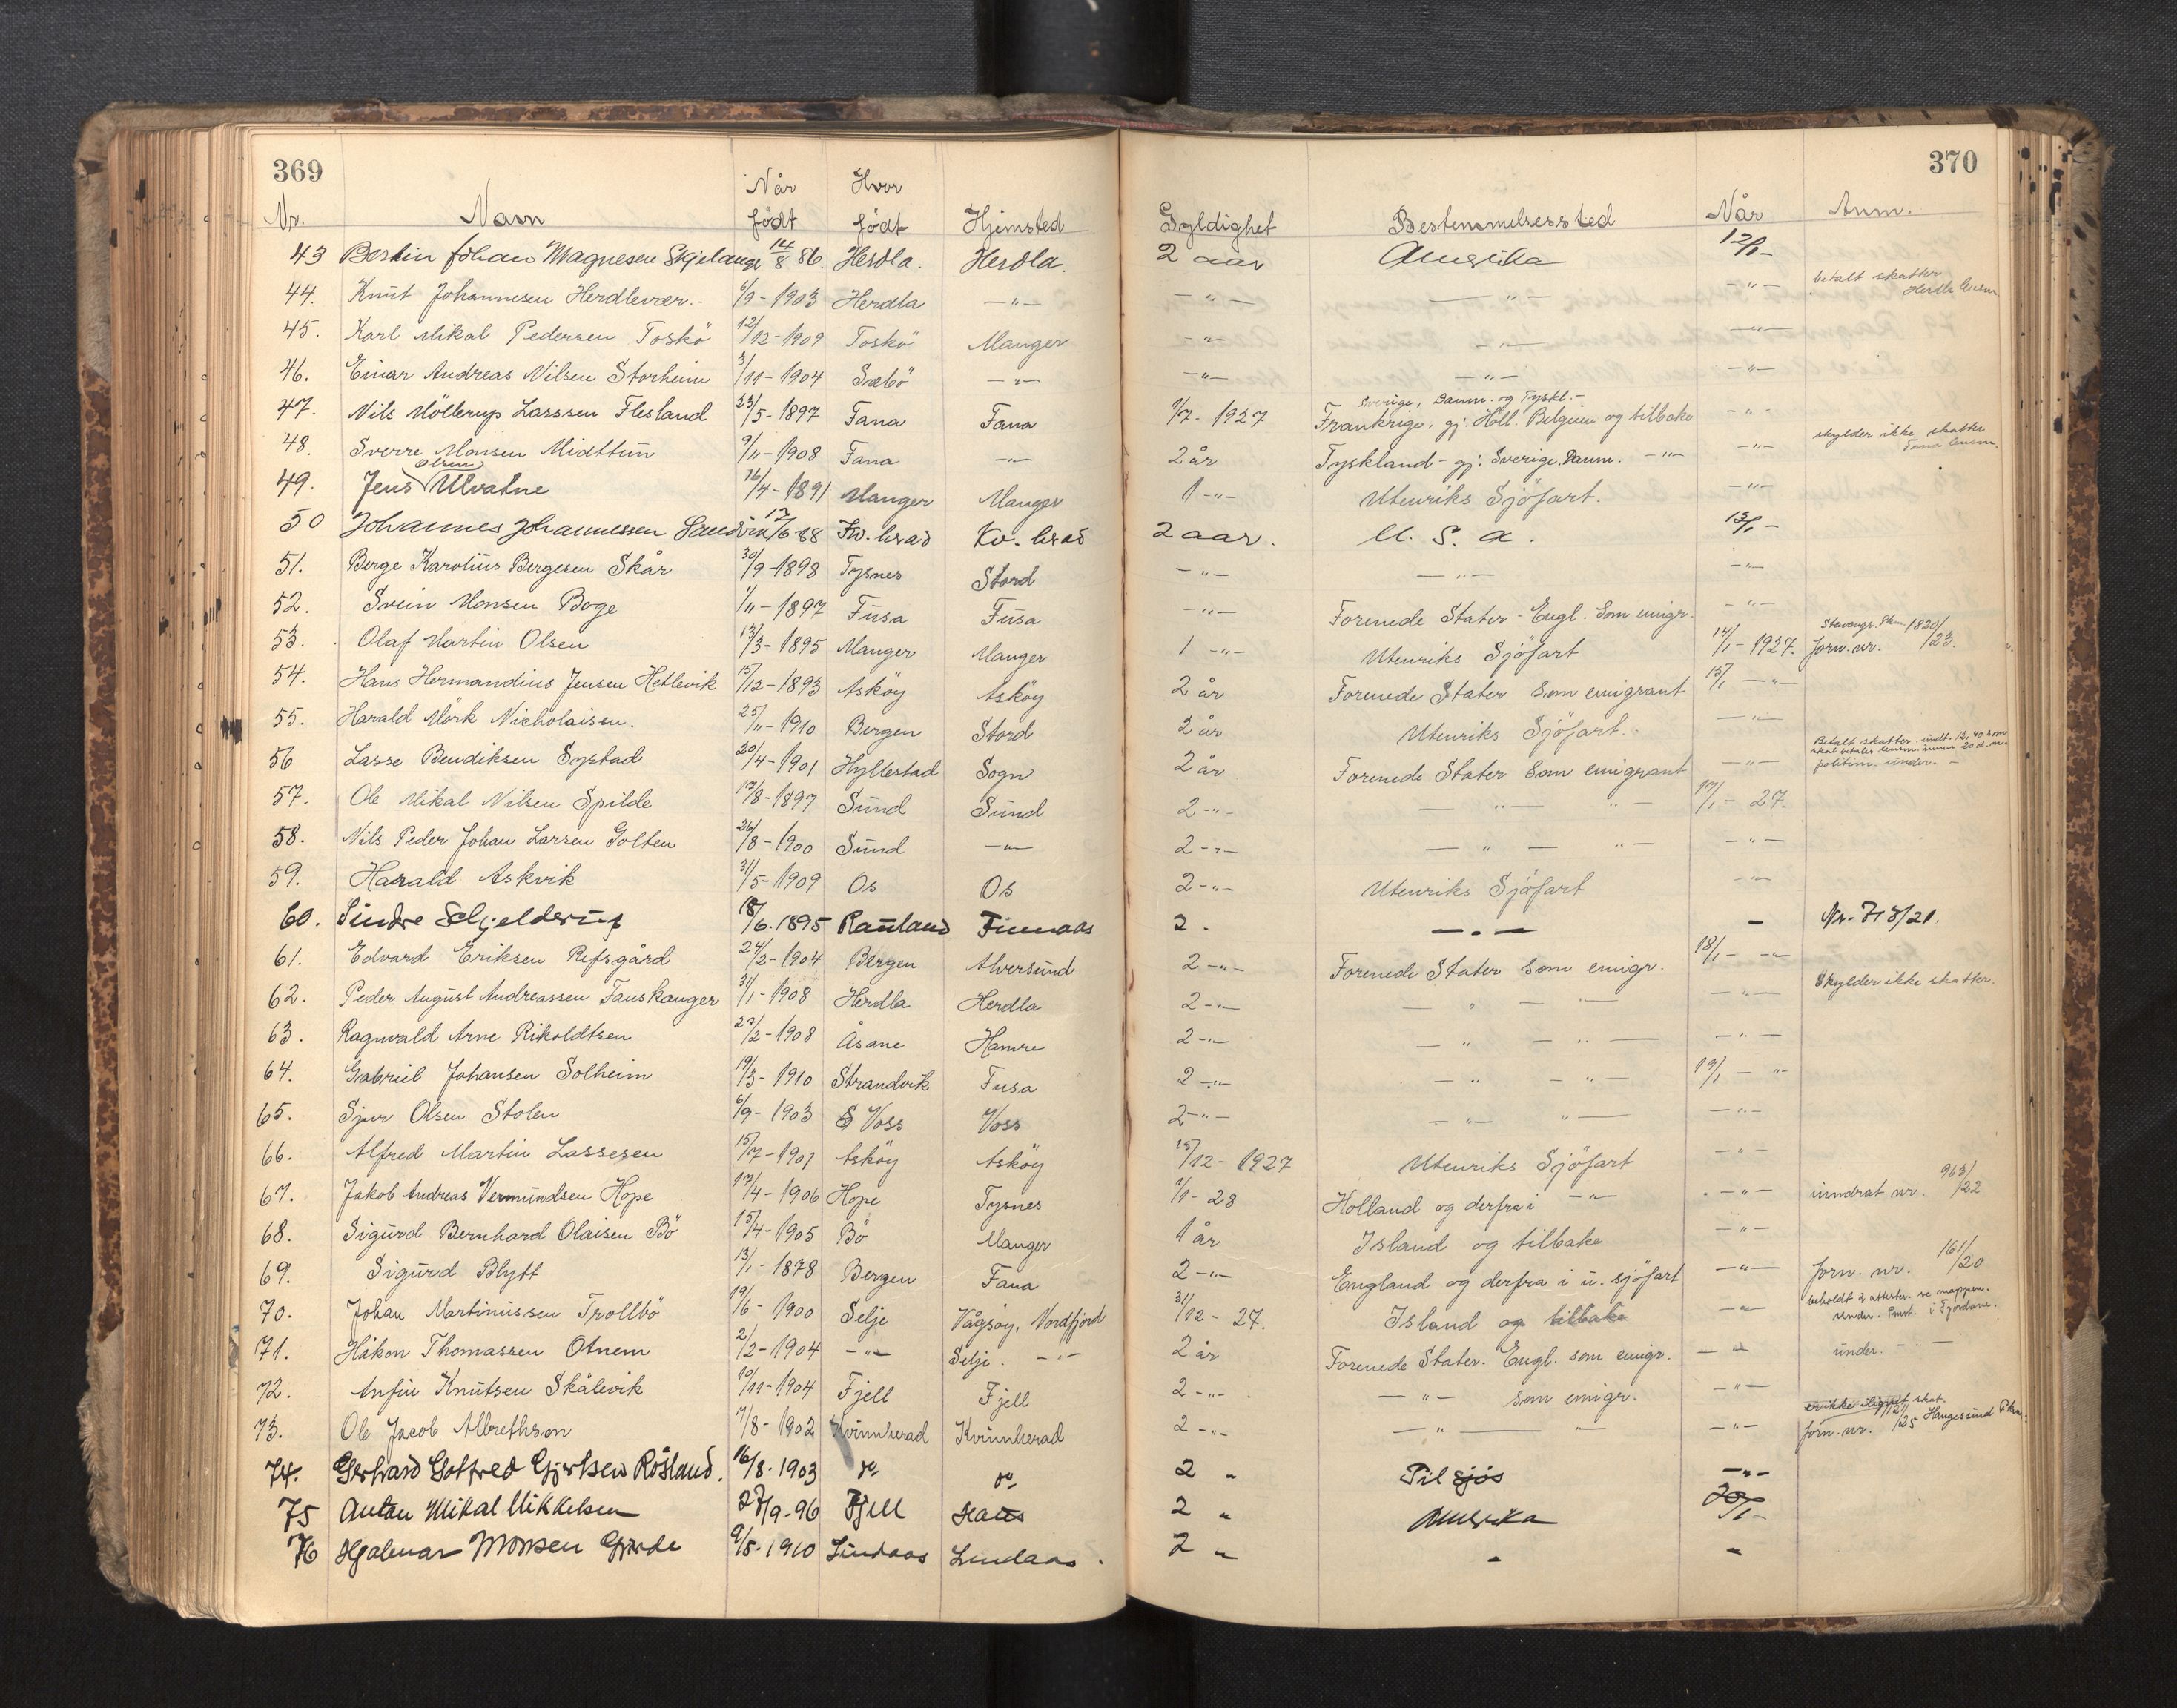 369
370
Når Hvor
Nr. Navn født født Hjemsted Gyldighet Bestemmelsessted Når Anm.
43 Bertin Johan Magnesen Skjelanger 14/8 86. Herdla. Herdla. 2 aar Amerika 12/1 -
44. Knut Johannesen Herdlevær.- 6/9 - 1903 Herdla -"- -"- -"- -"- betalt skatter Herdla lensm.
45. Karl Mikal Pedersen Toskö 12/12 - 1909 Toskö Manger -"- -"- -"-
46. Einar Andreas Nilsen Storheim 3/11 - 1904 Sæbö -"- -"- -"- -"-
Sverige, Danm. og Tyskl. -
47. Nils Möllerup Larssen Flesland 23/5 - 1897 Fana Fana 1/7 - 1927 Frankrige, gj. Holl. Belgien og tilbake -"-
48. Sverre Monsen Midttun 9/11 - 1908 Fana -"- 2 år Tyskland - gj: Sverige, Danm. -"- -"- skylder ikke skatter Fana lensm.
49. Jens Olsen Ulvatne 16/4 - 1891 Manger Manger 1 -"- Utenriks Sjöfart. -"-
50 Johannes Johannessen Sandvik 17/6 - 88 Kv. herad Kv. herad 2 aar. U. S. A. 13/1 -
51. Berge Karolius Bergesen Skår 30/9 - 1898 Tysnes Stord -"- -"- -"-
52. Svein Monsen Boge 1/11 - 1897 Fusa Fusa -"- Forenede Stater - Engl. Som emigr. -"-
53. Olaf Martin Olsen 13/3 - 1895 Manger Manger 1 -"- Utenriks Sjöfart 14/1 - 1927. Stavanger Pkm. forn. nr. 1820/23.
54. Hans Hermandius Jensen Hetlevik 15/12 - 1893 Asköy Asköy 2 år Forenede Stater Som emigrant 15/1 -"-
55. Harald Mörk Nicholaisen. 25/11 - 1910 Bergen Stord 2 år Utenriks Sjöfart. -"-
56 Lasse Bendiksen Systad 20/4 - 1901 Hyllestad Sogn 2 år Forenede Stater Som emigrant -"- Betalt skatter. undt. 13,40 som skal betales lensm. innen 20 d. m. politim. under. -
57. Ole Mikal Nilsen Spilde 17/8 - 1897 Sund Sund 2 -"- -"- "- 17/1 - 27.
58. Nils Peder Johan Larsen Golten 26/8 - 1900 Sund -"- 2 -"- -"- "- -"-
59. Harald Askvik 31/5 - 1909 Os Os 2 -"- Utenriks Sjöfart -"-
60. Sindre Schjelderup 18/6. 1895 Rauland Finnaas 2. -"- - Nr. 713/21.
61. Edvard Eriksen Refsgård 24/2 - 1904 Bergen Alversund 2 -"- Forenede Stater Som emigr. 18/1 - -"-
62. Peder August Andreassen Fauskanger 31/1 - 1908 Herdla Herdla 2 -"- -"- -"- -"- Skylder ikke skatter.
63. Ragnvald Arne Rikoldtsen 27/2 - 1908 Åsane Hamre 2 -"- -"- -"- -"-
64. Gabriel Johansen Solheim 19/3 - 1910 Strandvik Fusa 2 -"- -"- -"- 19/1 - "-
65. Sjur Olsen Stolen 6/9 - 1903 Voss Voss 2 -"- -"- "- -"-
66. Alfred Martin Lassesen 15/7 - 1901 Asköy Asköy 15/12 - 1927 Utenriks Sjöfart -"-
67. Jakob Andreas Vermundsen Hope 17/4 - 1906 Hope Tysnes 1/1 - 28 Holland og derfra i -"- -"- inndrat nr. 963/22
68. Sigurd Bernhard Olaisen Bö 15/4 - 1905 Bö Manger 1 år Island og tilbake -"-
69. Sigurd Blytt 13/1 - 1878 Bergen Fana 2 -"- England og derfra i u. sjöfart -"- forn. nr. 161/20
70. Johan Martinussen Trollbö 19/6 - 1900 Selje Vågsøy, Nordfjord 31/12 - 27. Island og tilbake -"- beholdt 2 attester se mappen. under. Pmst. i Fjordane.
71. Håkon Thomassen Otnem 2/2 - 1904 -"- Selje. -"- 2 år Forenede Stater. Engl. som emigr. -"- under. -"-
72. Anfin Knutsen Skålevik 10/11 - 1904 Fjell Fjell 2 -"- -"- som emigr. -"-
73. Ole Jacob Albrethson 7/8 - 1902 Kvinnherad Kvinnherad 2 -"- -"- "- -"- er ikke lignet skat. forn. nr. /25 Haugesund Pkm.
74. Gerhard Gotfred Gjertsen Røsland. 16/8. 1903 do do 2 " Til sjøs -"-
75 Anton Mikal Mikkelsen 27/9 - 96 Fjell Haus 2 " Amerika 20/1 -
76 Hjalmar Monsen Gjerde 9/5 - 1910 Lindaas Lindaas. 2 " - -